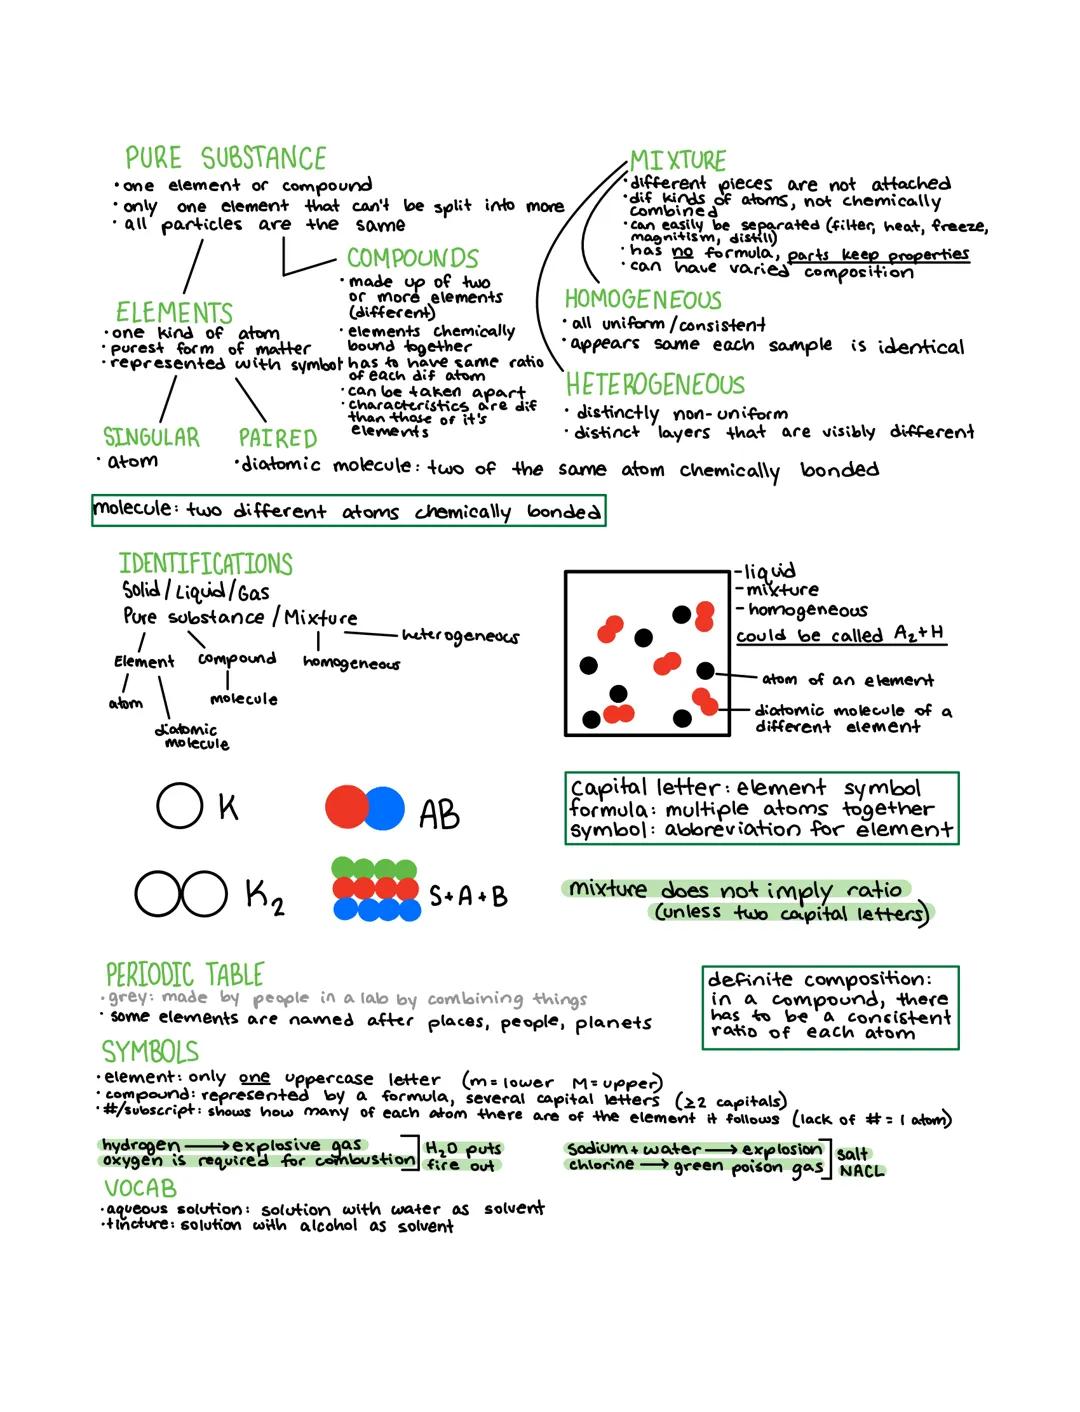 PURE SUBSTANCE
• one element or compound
• only one element that can't be split into more
• all particles are the same
COMPOUNDS
• made up of two
or more elements
(different)
• elements chemically
bound together
• has to have same ratio
of each dif atom
• can be taken apart
• characteristics are dif
than those of it's
elements
ELEMENTS
• one kind of atom
• purest form of matter
• represented with symbol
SINGULAR
• atom
PAIRED
• diatomic molecule: two of the same atom chemically bonded
MIXTURE
• different pieces are not attached
• dif kinds of atoms, not chemically
combined
• can easily be separated (filter, heat, freeze,
magnitism, distill)
• has no formula, parts keep properties
• can have varied composition
HOMOGENEOUS
• all uniform/consistent
• appears same each sample is identical
HETEROGENEOUS
• distinctly non-uniform
• distinct layers that are visibly different
molecule: two different atoms chemically bonded
IDENTIFICATIONS
Solid/Liquid/Gas
Pure substance/Mixture
heterogeneous
Element
compound
homogeneous
atom
molecule
diatomic
molecule
-liquid
-mixture
-homogeneous
could be called A₂+H
atom of an element
diatomic molecule of a
different element
K
AB
K₂
S+A+B
Capital letter: element symbol
formula: multiple atoms together
symbol: abbreviation for element
mixture does not imply ratio
(unless two capital letters)
PERIODIC TABLE
• grey: made by people in a lab by combining things
• some elements are named after places, people, planets
definite composition:
in a compound, there
has to be a consistent
ratio of each atom
SYMBOLS
• element: only one uppercase letter (m=lower M=upper)
• compound: represented by a formula, several capital letters (≥2 capitals)
• #/subscript: shows how many of each atom there are of the element it follows (lack of # = 1 atom)
hydrogen → explosive gas
oxygen is required for combustion
H₂O puts
fire out
Sodium + water → explosion
chlorine → green poison gas
salt
NACL
VOCAB
• aqueous solution: solution with water as solvent
• tincture: solution with alcohol as solvent